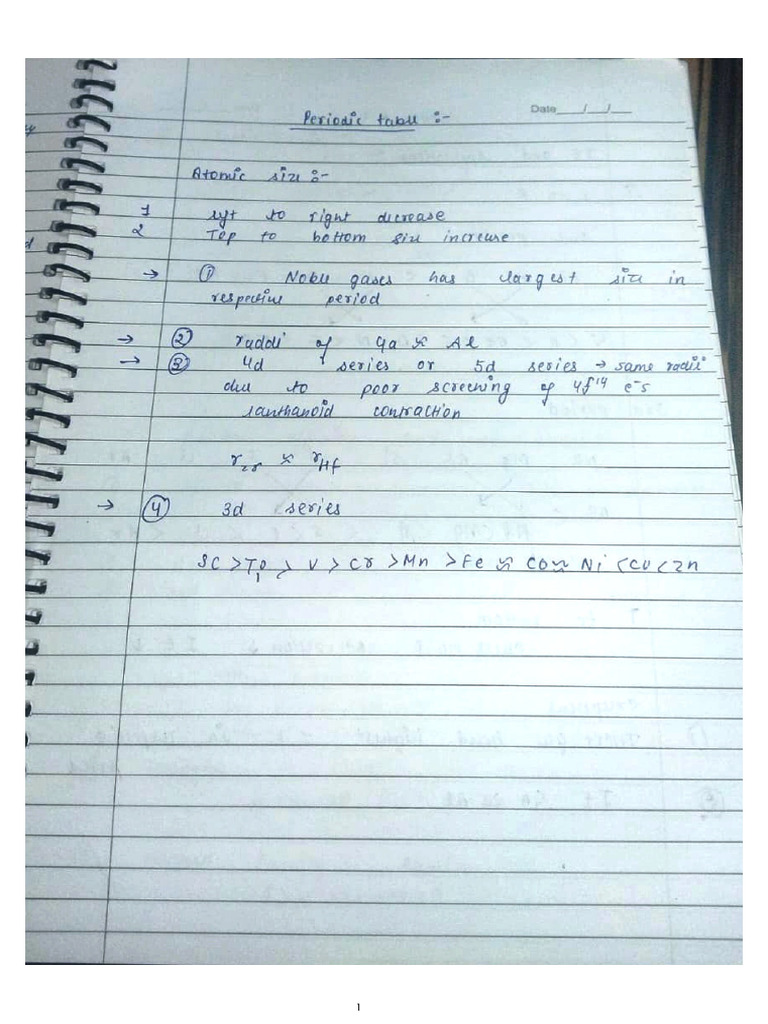 Date__/__/__
Periodic table :-
Atomic size :-
1 left to right decrease
2 Top to bottom size increase
→ ① Noble gases has largest size in
respective period
→ ② raddi of Ga ≈ Al
→ ③ 4d series or 5d series → same radii
due to poor screening of 4f¹⁴ e⁻s
lanthanoid contraction
rZr ≈ rHf
→ ④ 3d series
SC > Ti > V > Cr > Mn > Fe ≈ CO ≈ Ni < CU < Zn
1